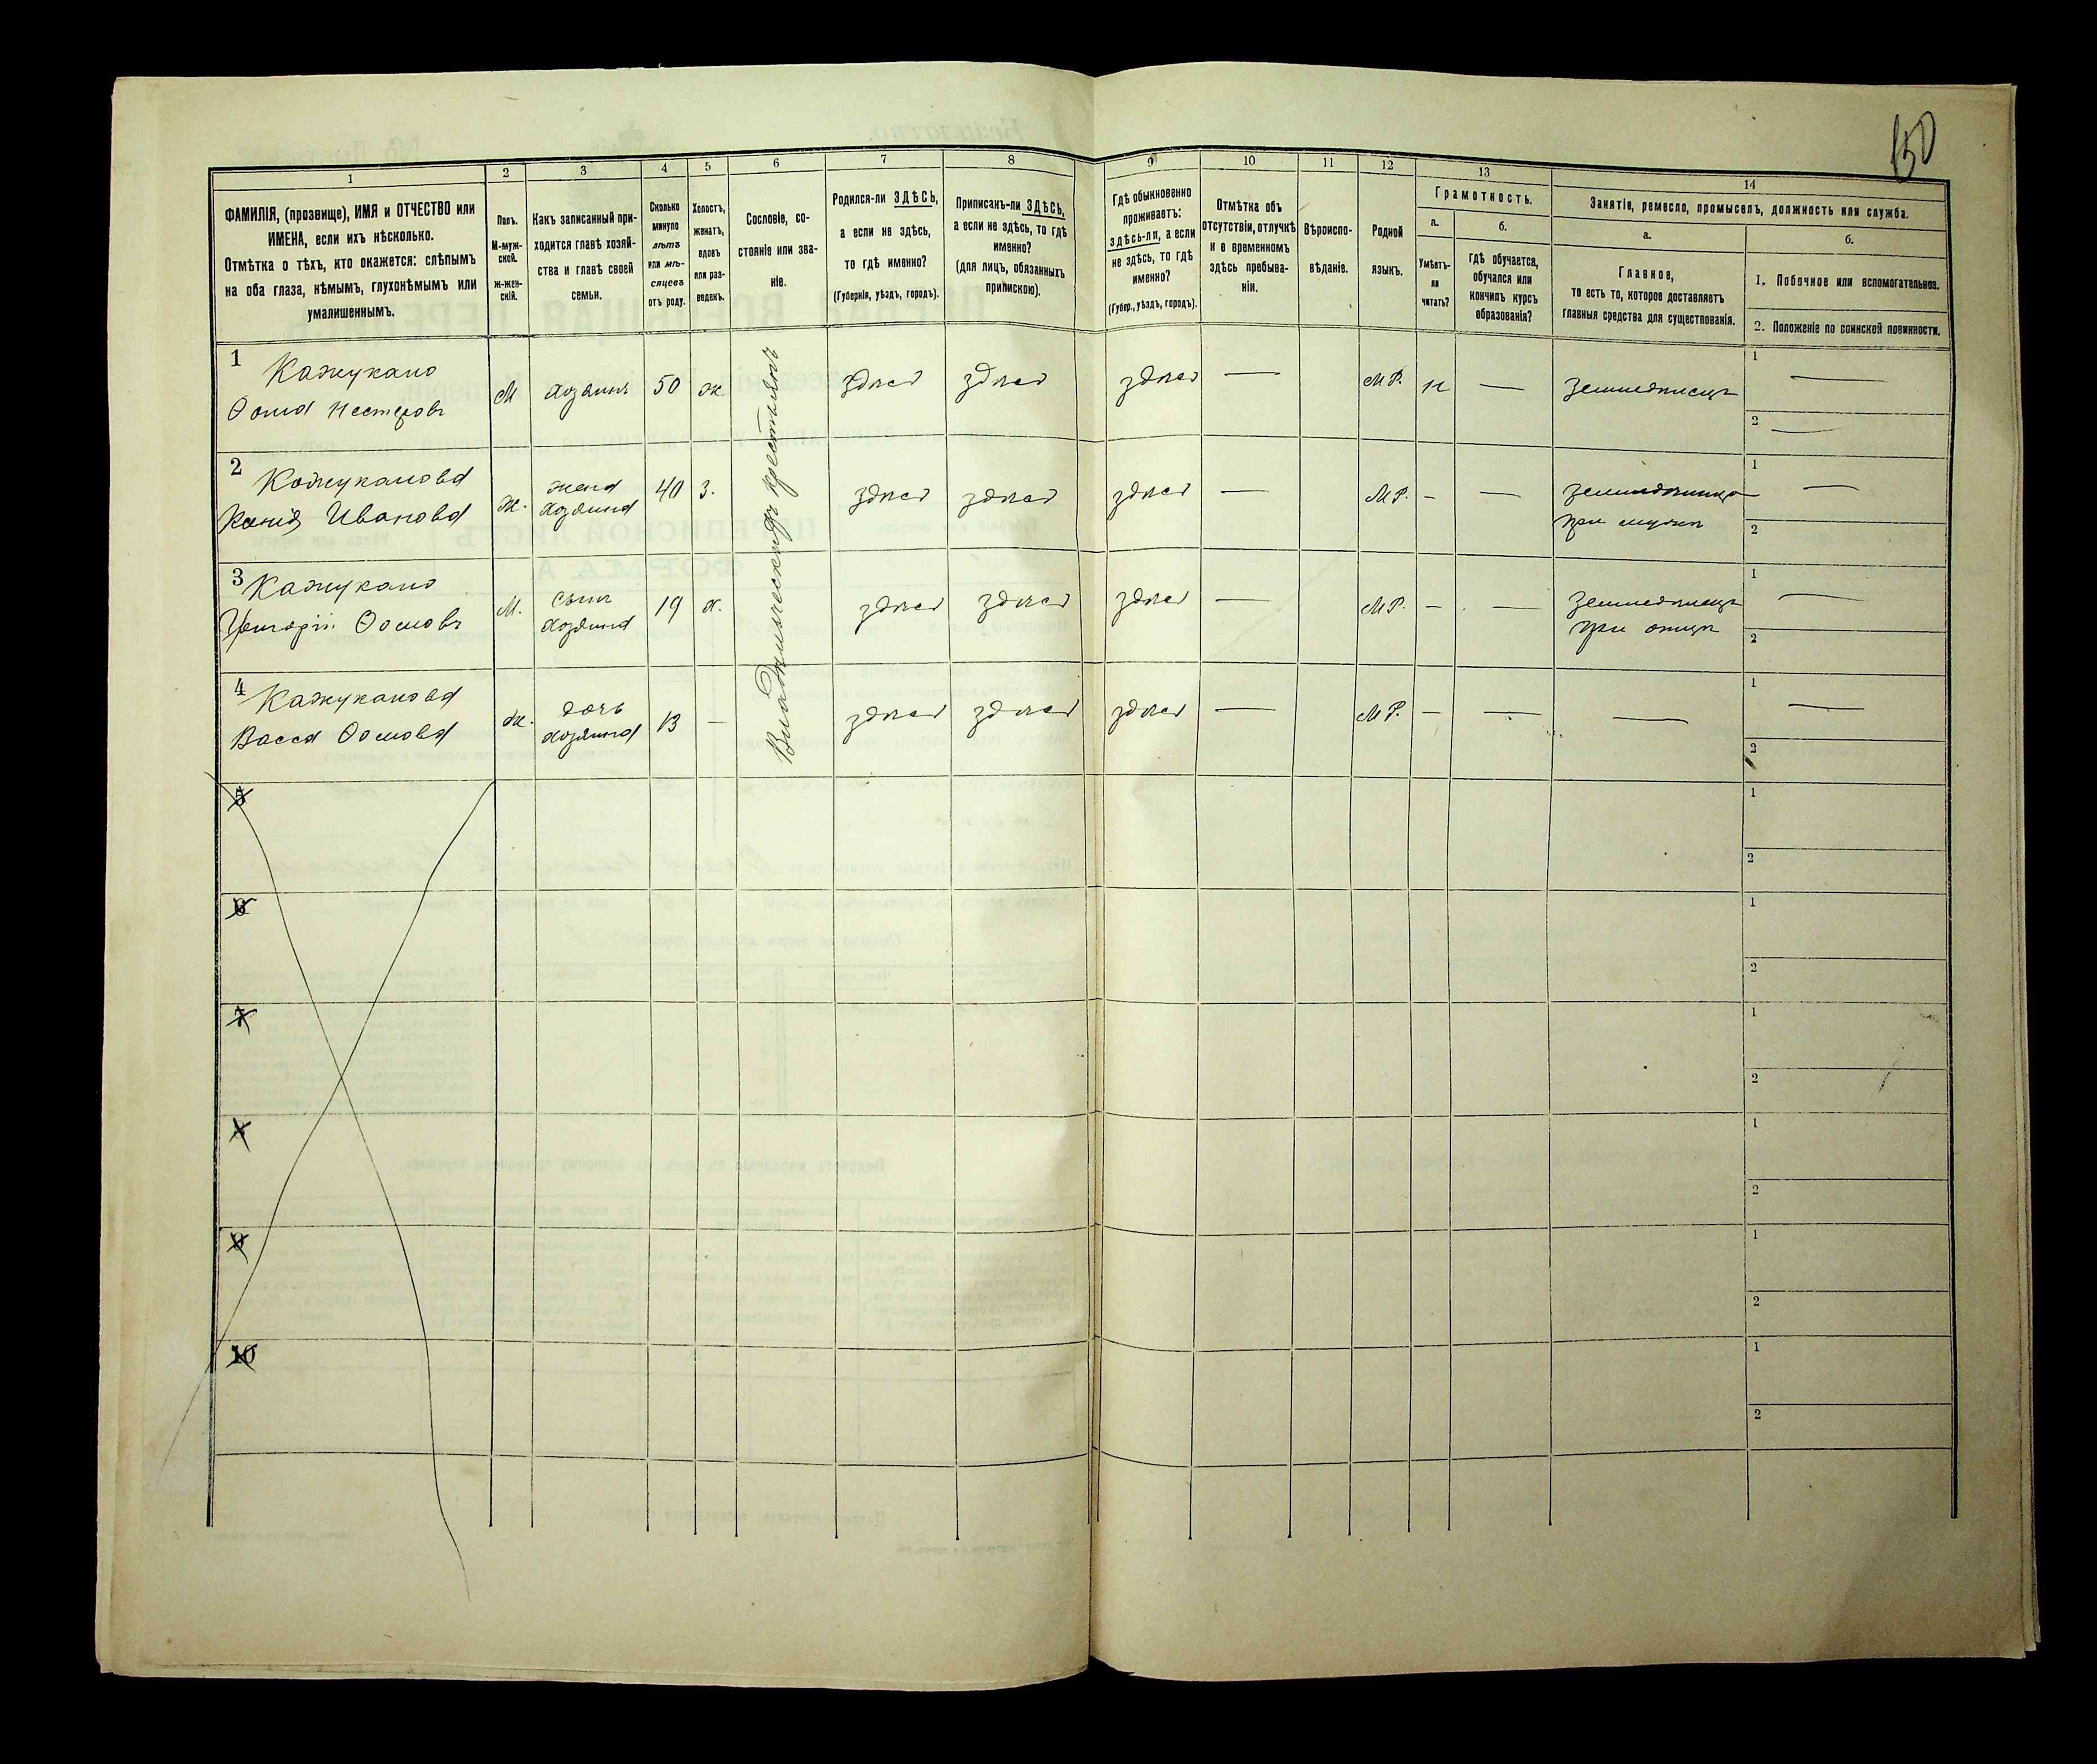 150
1
2
3
4
5
6
7
8
9
10
11
12
13
14
ФАМИЛІЯ, (прозвище), ИМЯ и ОТЧЕСТВО или
ИМЕНА, если ихъ нѣсколько.
Отмѣтка о тѣхъ, кто окажется: слѣпымъ
на оба глаза, нѣмымъ, глухонѣмымъ или
умалишеннымъ.
Полъ.
М-муж-
ской.
ж-жен-
скій.
Какъ записанный при-
ходится главѣ хозяй-
ства и главѣ своей
семьи.
Сколько
минуло
лѣтъ
или мѣ-
сяцевъ
отъ роду.
Холостъ,
женатъ,
вдовъ
или раз-
веденъ.
Сословіе, со-
стояніе или зва-
ніе.
Родился-ли ЗДѢСЬ,
а если не здѣсь,
то гдѣ именно?
(Губернія, уѣздъ, городъ).
Приписанъ-ли ЗДѢСЬ,
а если не здѣсь, то гдѣ
именно?
(для лицъ, обязанныхъ
припискою).
Гдѣ обыкновенно
проживаетъ:
здѣсь-ли, а если
не здѣсь, то гдѣ
именно?
(Губер., уѣздъ, городъ).
Отмѣтка объ
отсутствіи, отлучкѣ
и о временномъ
здѣсь пребыва-
ніи.
Вѣроиспо-
вѣданіе.
Родной
языкъ.
Грамотность.
а.
Умѣетъ-
ли
читать?
б.
гдѣ обучается,
обучался или
кончилъ курсъ
образованія?
Занятіе, ремесло, промыселъ, должность или служба.
а.
Главное,
то есть то, которое доставляетъ
главныя средства для существованія.
б.
1. Побочное или вспомогательное.
2. Положеніе по воинской повинности.
1
Кажукало
Ѳома Нестеровъ
М
хозяинъ
50
ж
здѣсь
здѣсь
здѣсь
—
М Р.
н
—
Земледѣлецъ
1
—
2
—
2
Кажуканова
Иванова
ж.
жена
хозяина
40
з.
здѣсь
здѣсь
здѣсь
—
М Р.
—
—
при мужѣ
1
—
2
3
Кажукало
Григорій Ѳомовъ
М.
сынъ
хозяина
19
х.
здѣсь
здѣсь
здѣсь
—
М Р.
—
—
Земледѣлецъ
при отцѣ
1
—
2
4
Кажуканова
Васса Ѳомова
ж.
дочь
хозяина
13
—
здѣсь
здѣсь
здѣсь
—
М Р.
—
—
—
1
—
2
крестьянъ
5
1
2
6
1
2
7
1
2
8
1
2
9
1
2
10
1
2